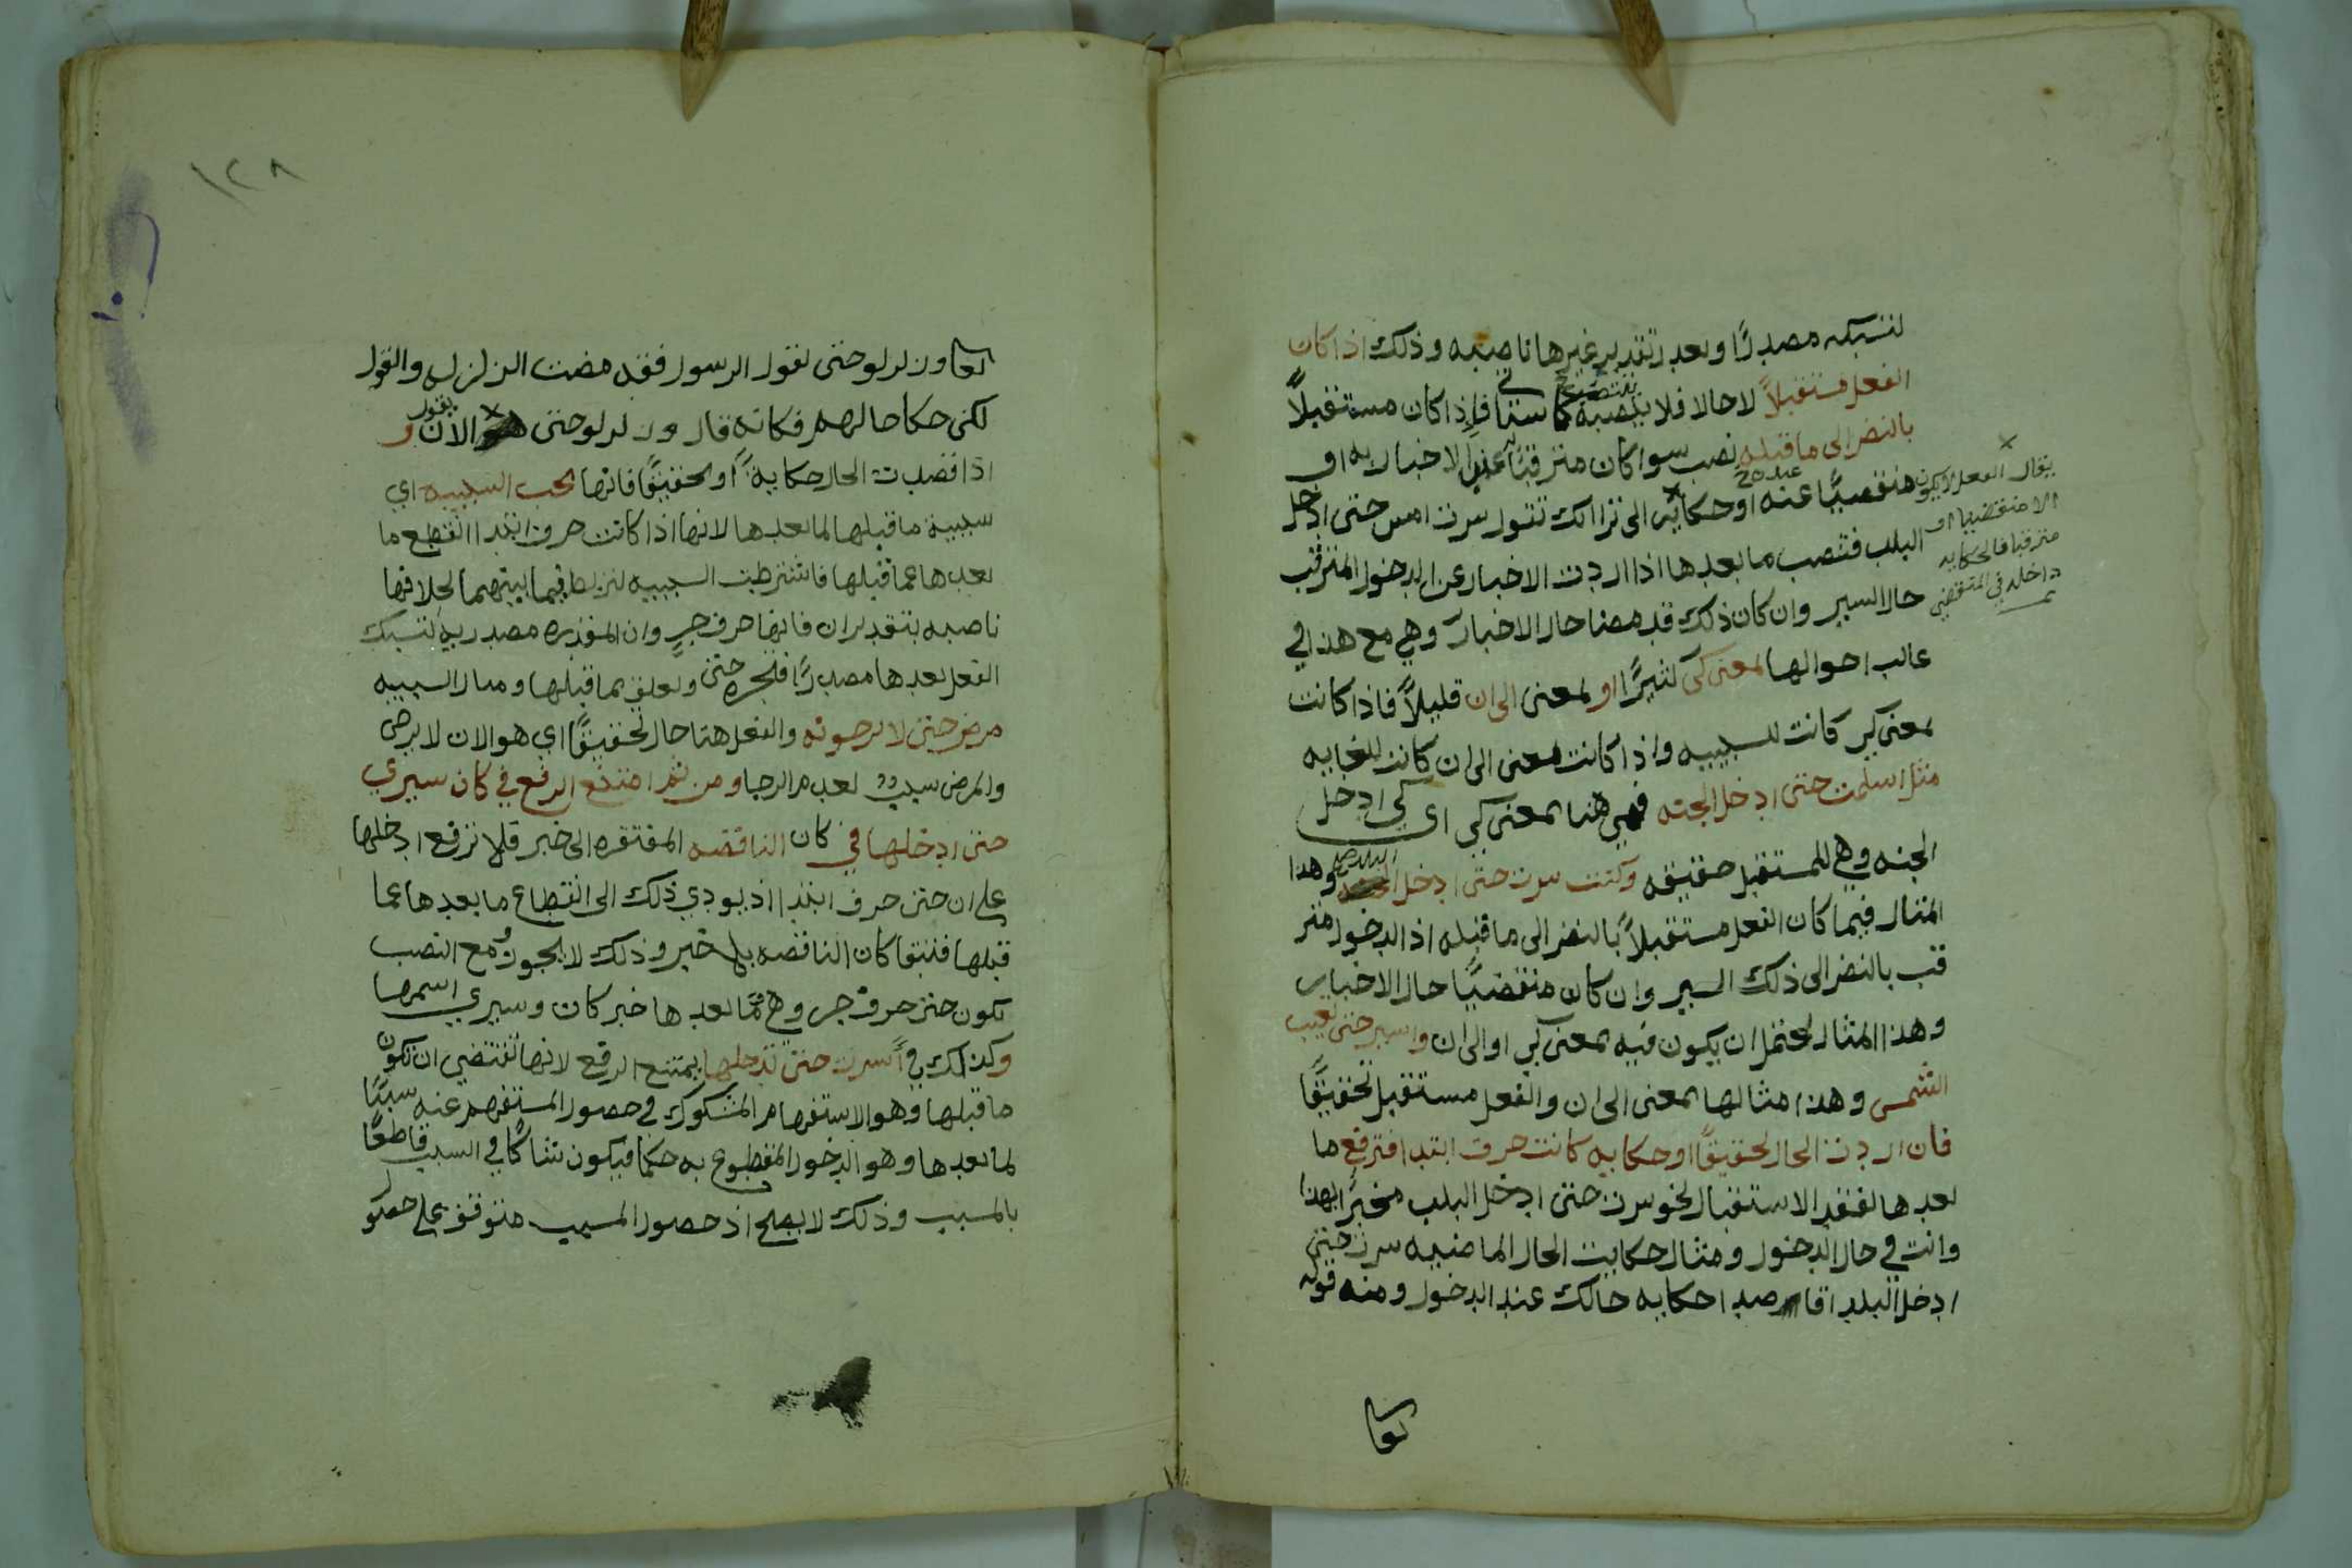 لنسبكه مصدرًا وبعد تقدير غيرها ناصبه وذلك اذا كان
الفعل مستقبلاً لا حالا فلا ينصبه كما سيتا فاذا كان مستقبلاً
بالنضر الى ما قبله نصب سوا كان مترقبًا عند الاخبار به او
منقضيًا عنه او حكايه الى تراانك تقول سرت امس حتى ادخل
البلد فتنصب ما بعدها اذا اردت الاخبار عن الدخول المترقب
حال السير وان كان ذلك قد مضا حال الاخبار وهي مع هذا في
غالب احوالها بمعنى كي كثيرًا او بمعنى الى ان قليلاً فاذا كانت
بمعنى كي كانت للسببيه واذا كانت بمعنى الى ان كانت للغايه
مثل اسلمت حتى ادخل الجنه فهي هنا بمعنى كي اي كي ادخل
الجنه وهي للمستقبل حقيقه وكنت سرت حتى ادخل البلد وهذا
المثال فيما كان الفعل مستقبلاً بالنضر الى ما قبله اذ الدخول متر
قب بالنضر الى ذلك السير وان كان منقضيًا حال الاخبار
وهذا المثال يحتمل ان يكون فيه بمعنى كي او الى ان واسير حتى تغيب
الشمس وهذا مثالها بمعنى الى ان والفعل مستقبل تحقيقًا
فان اردت الحال تحقيقًا او حكايه كانت حرف ابتدا فترفع ما
بعدها لفقد الاستقبال نحو سرت حتى ادخل البلد مخبرًا بهذا
وانت في حال الدخول ومثال حكايت الحال الماضيه سرت حتى
ادخل البلد اقا رصدا حكايه حالك عند الدخول ومنه قوله
تعا
يقال الفعل لا يكون
الا منقضيا او
مترقبا فالحكايه
داخله في المنقضي
١٢٨
تعا وزلزلو حتى يقول الرسول فقد مضت الزلزل والقول
لكن حكا حالهم فكانه قال وزلزلو حتى هو الان يقول و
اذا قصدت الحال حكايةً او تحقيقًا فانها تجب السببيه اي
سببية ما قبلها لما بعدها لانها اذا كانت حرف ابتدا انقطع ما
بعدها عما قبلها فاشترطت السببيه لتربط فيما بينهما بخلافها
ناصبه بتقدير ان فانها حرف جرٍ وان المقدره مصدريه لتسبك
الفعل بعدها مصدرًا فتجره حتى وتعلق بما قبلها ومثال السببيه
مرض حتى لا يرجونه والفعل هنا حال تحقيقًا اي هو الان لا يرجى
والمرض سبب لعدم الرجا ومن ثم امتنع الرفع في كان سيري
حتى ادخلها في كان الناقصه المفتقره الى خبر فلا ترفع ادخلها
على ان حتى حرف ابتدا اذ يودي ذلك الى انقطاع ما بعدها عما
قبلها فتبقا كان الناقصه بلا خبر وذلك لا يجوز ومع النصب
تكون حتى حرف جر وهي مما بعدها خبر كان وسيري اسمها
وكذالك في أسرت حتى تدخلها يمتنع الرفع لانها تقتضي ان تكون
ما قبلها وهو الاستفهام المشكوك في حصول المستفهم عنه سببًا
لما بعدها وهو الدخول المقطوع به حكما فيكون شاكًا في السبب قاطعًا
بالمسبب وذلك لا يصلح اذ حصول المسبب متوقف على حصو